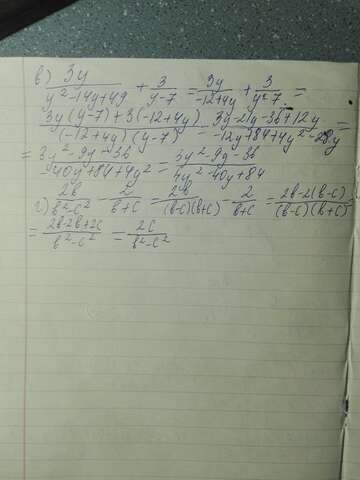 в) 3y/(y²-14y+49) + 3/(y-7) = 3y/(-12+4y) + 3/(y-7) =
= (3y(y-7)+3(-12+4y))/((-12+4y)(y-7)) = (3y-21y-36+12y)/(-12y+84+4y²-28y) =
= (3y²-9y-36)/(-40y+84+4y²) = (3y²-9y-36)/(4y²-40y+84)
г) 2b/(b²-c²) - 2/(b+c) = 2b/((b-c)(b+c)) - 2/(b+c) = (2b-2(b-c))/((b-c)(b+c)) =
= (2b-2b+2c)/(b²-c²) = 2c/(b²-c²)